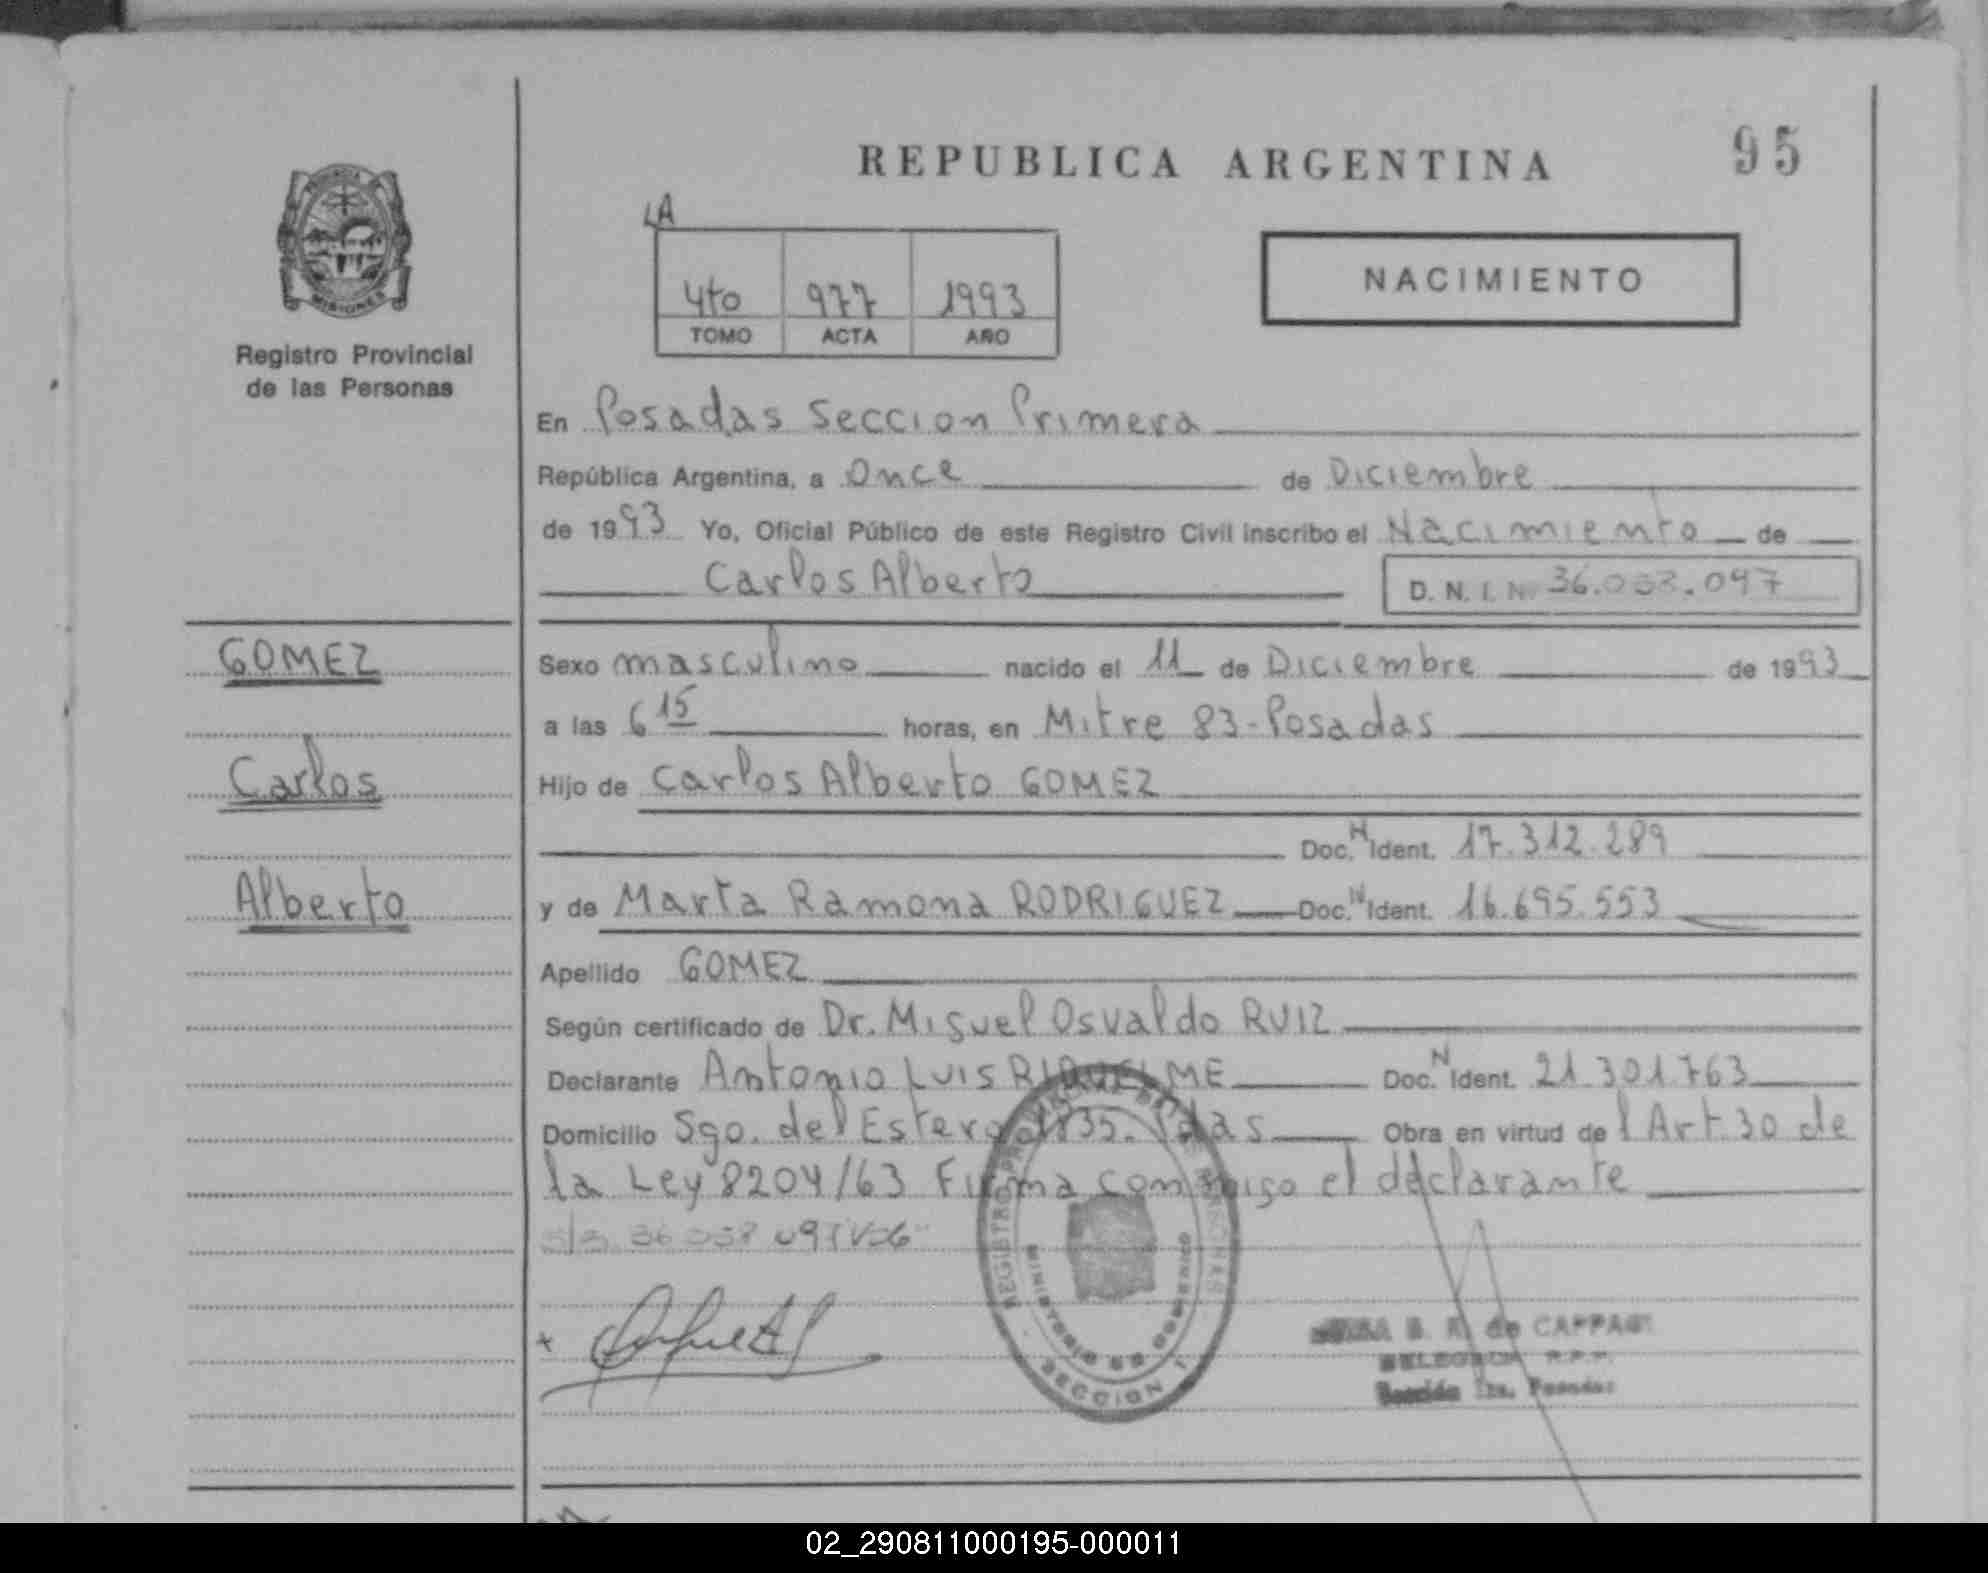 95
REPUBLICA ARGENTINA
PROVINCIA
MISIONES
Registro Provincial
de las Personas
LA
4to 977 1993
TOMO ACTA AÑO
NACIMIENTO
En Posadas Seccion Primera
República Argentina, a Once de Diciembre
de 1993 Yo, Oficial Público de este Registro Civil inscribo el Nacimiento de
Carlos Alberto D. N. I. N 36.038.097
GOMEZ
Carlos
Alberto
Sexo masculino nacido el 11 de Diciembre de 1993
a las 6 15 horas, en Mitre 83-Posadas
Hijo de Carlos Alberto GOMEZ
Doc. N Ident. 17.312.289
y de Marta Ramona RODRIGUEZ Doc. N Ident. 16.695.553
Apellido GOMEZ
Según certificado de Dr. Miguel Osvaldo RUIZ
Declarante Antonio LUIS RIQUELME Doc. N Ident. 21.301.763
Domicilio Sgo. del Estero 1835. Pdas Obra en virtud de l Art 30 de
la Ley 8204/63 Firma conmigo el declarante
REGISTRO PROVINCIAL DE LAS PERSONAS
MINISTERIO DE GOBIERNO
SECCION 1
de CAPPA
DELEGADA R.P.P.
Sección 1ra. Posadas
02_290811000195-000011